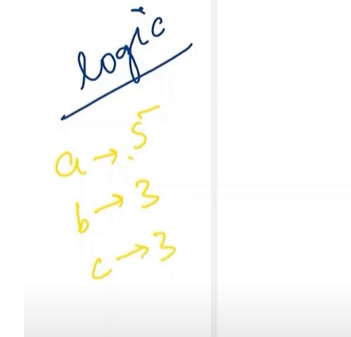 logic
a → 5
b → 3
c → 3